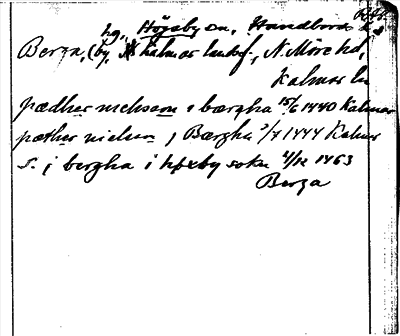 hg. Högsby sn, Handbörds hd
Berga, (by, Kalmar landsf., N. Möre hd,
Kalmar län
pædher niclisson i bærgha 15/6 1440 Kalmar
pæther nielsn j Bærgha 2/7 1444 Kalmar
s. j bergha i høxby sokn 4/12 1463
Berga